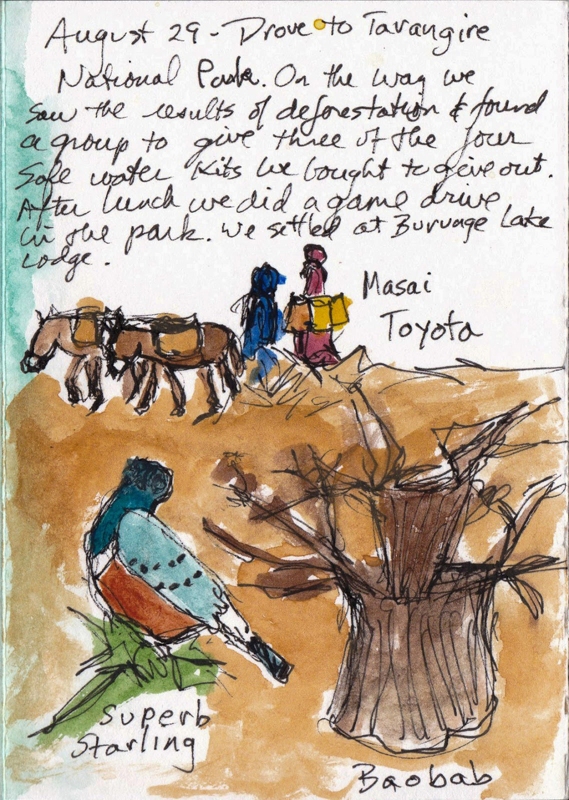 August 29 - Drove to Tarangire
National Park. On the way we
saw the results of deforestation & found
a group to give three of the four
safe water kits we bought to give out.
After lunch we did a game drive
in the park. We settled at Burunge Lake
Lodge.
Masai
Toyota
Superb
Starling
Baobab